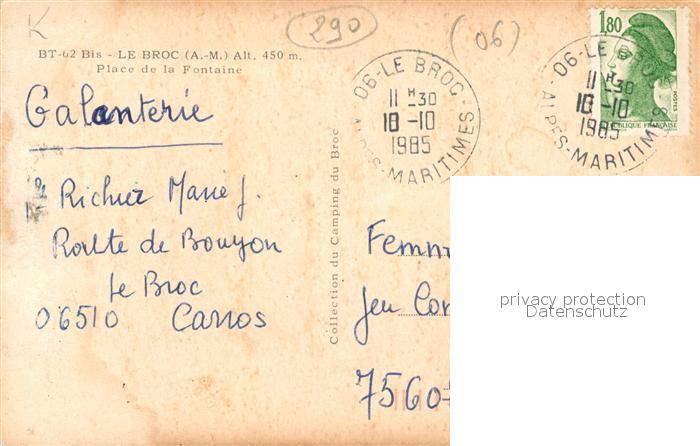 K
290
(06)
BT-62 Bis - LE BROC (A.-M.) Alt. 450 m.
Place de la Fontaine
Galanterie
Richier Marie J.
Route de Bouyon
Le Broc
06510 Carros
Collection du Camping du Broc
06-LE BROC-
11 H 30
10-10
1985
ALPES-MARITIMES
1,80
POSTES
RÉPUBLIQUE FRANÇAISE
06-LE BROC
11 H 30
10-10
1985
ALPES-MARITIMES
Femm
Jeu Con
7560
privacy protection
Datenschutz